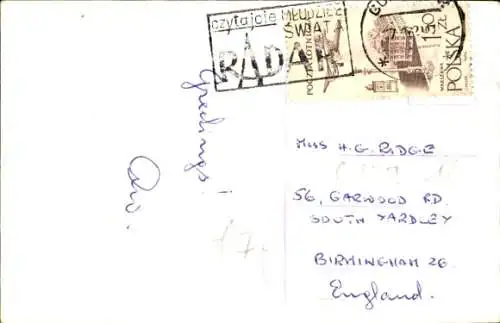 czytajcie MŁODZIEŻ
ŚWIAT
RADAR
POCZTA LOTNICZA
1,50
ZŁ
POLSKA
WARSZAWA
Greetings!
Miss H.G. RIDGE
56, GARWOOD RD.
SOUTH YARDLEY
BIRMINGHAM 26.
England.